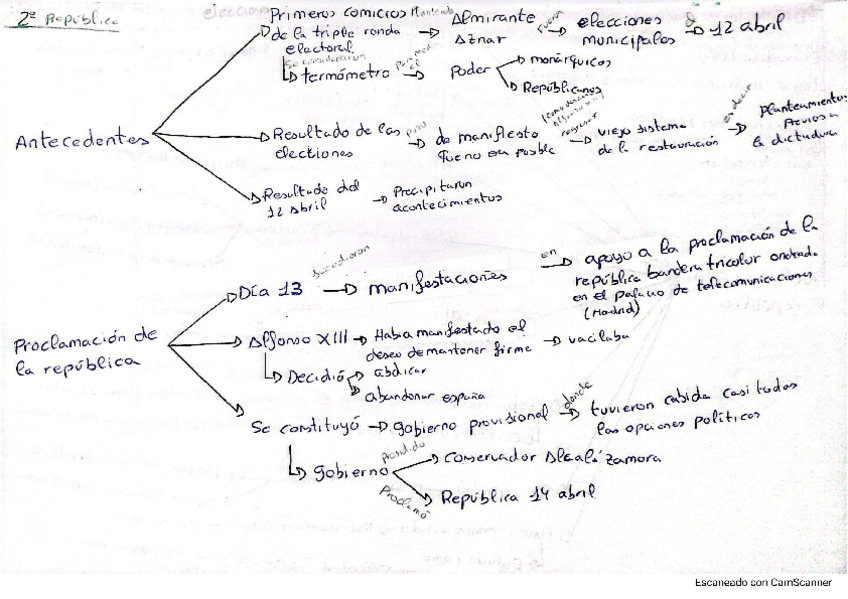 2ª República
Primeros comicios planteado Almirante fueron elecciones
de la triple ronda Aznar municipales 12 abril
electoral
Se consideraron
termómetro para medir el Poder monárquicos
Repúblicanos
Antecedentes
Resultado de las puso de manifiesto regresar viejo sistema es decir planteamientos
elections que no era posble de la restauración previos a
la dictadura
Resultado del Precipitaron
12 Abril acontecimientos
Día 13 sucedieron manifestaciones en apoyo a la proclamación de la
república bandera tricolor ondeada
en el palacio de telecomunicaciones
(Madrid)
Proclamación de
la república
Alfonso XIII Habia manifestado el
deseo de mantener firme vacilaba
Decidió abdicar
abandonar españa
Se constituyó gobierno provisional donde tuvieron cabida casi todas
las opciones políticos
gobierno presidido conservador Alcalá Zamora
Proclamó República 14 abril
Escaneado con CamScanner